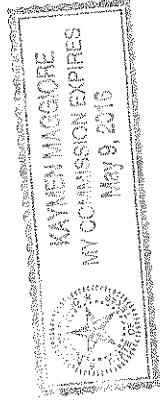 MAGGIORE
MY COMMISSION EXPIRES
May 9, 2016